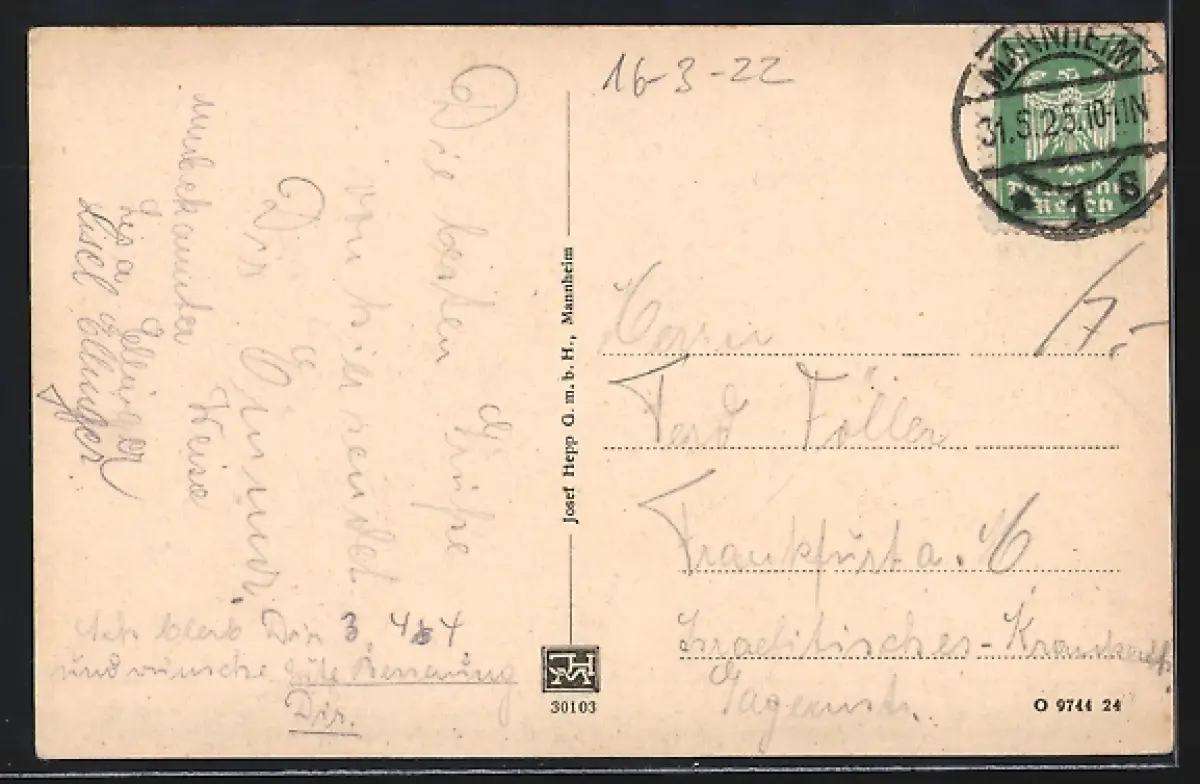 Die besten Grüße
von hier sendet
Dir
unbekannter Weise
Lisel Ellinger
Ich bleib Dir 3 4 b 4
und wünsche gute Besserung
Dir.
Josef Hepp G. m. b. H., Mannheim
30103
16-3-22
MANNHEIM
31.5.25.10-11N
* 1 s
Deutsches
Reich
7.-
Herrn
Ferd Föller
Frankfurt a. M
Israelitisches-Krankenh.
Gagernstr.
O 9744 24